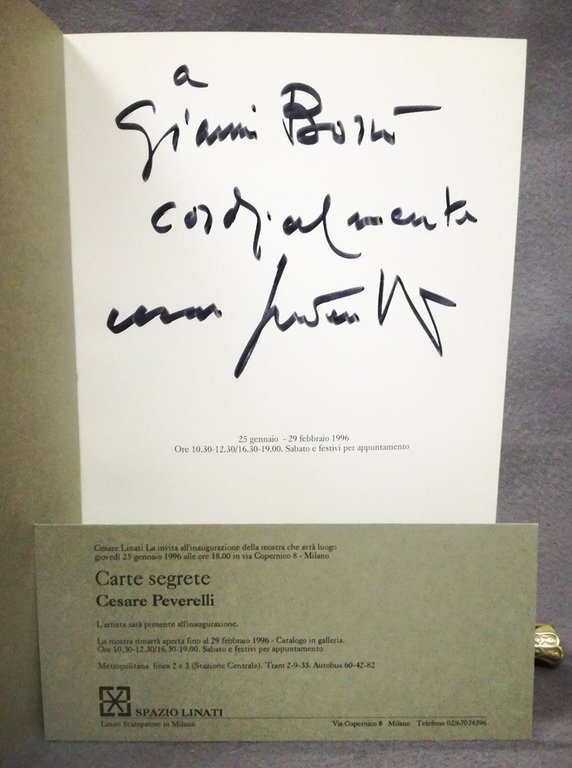 a
Gianni Bosio
cordialmente
Cesare Peverelli
25 gennaio - 29 febbraio 1996
Ore 10.30-12.30/16.30-19.00. Sabato e festivi per appuntamento
Cesare Linati La invita all'inaugurazione della mostra che avrà luogo
giovedì 25 gennaio 1996 alle ore 18.00 in via Copernico 8 - Milano
Carte segrete
Cesare Peverelli
L'artista sarà presente all'inaugurazione.
La mostra rimarrà aperta fino al 29 febbraio 1996 - Catalogo in galleria.
Ore 10.30-12.30/16.30-19.00. Sabato e festivi per appuntamento
Metropolitana linea 2 e 3 (Stazione Centrale). Tram 2-9-33. Autobus 60-42-82
SPAZIO LINATI
Linati Stampatore in Milano
Via Copernico 8 Milano Telefono 02/67074396